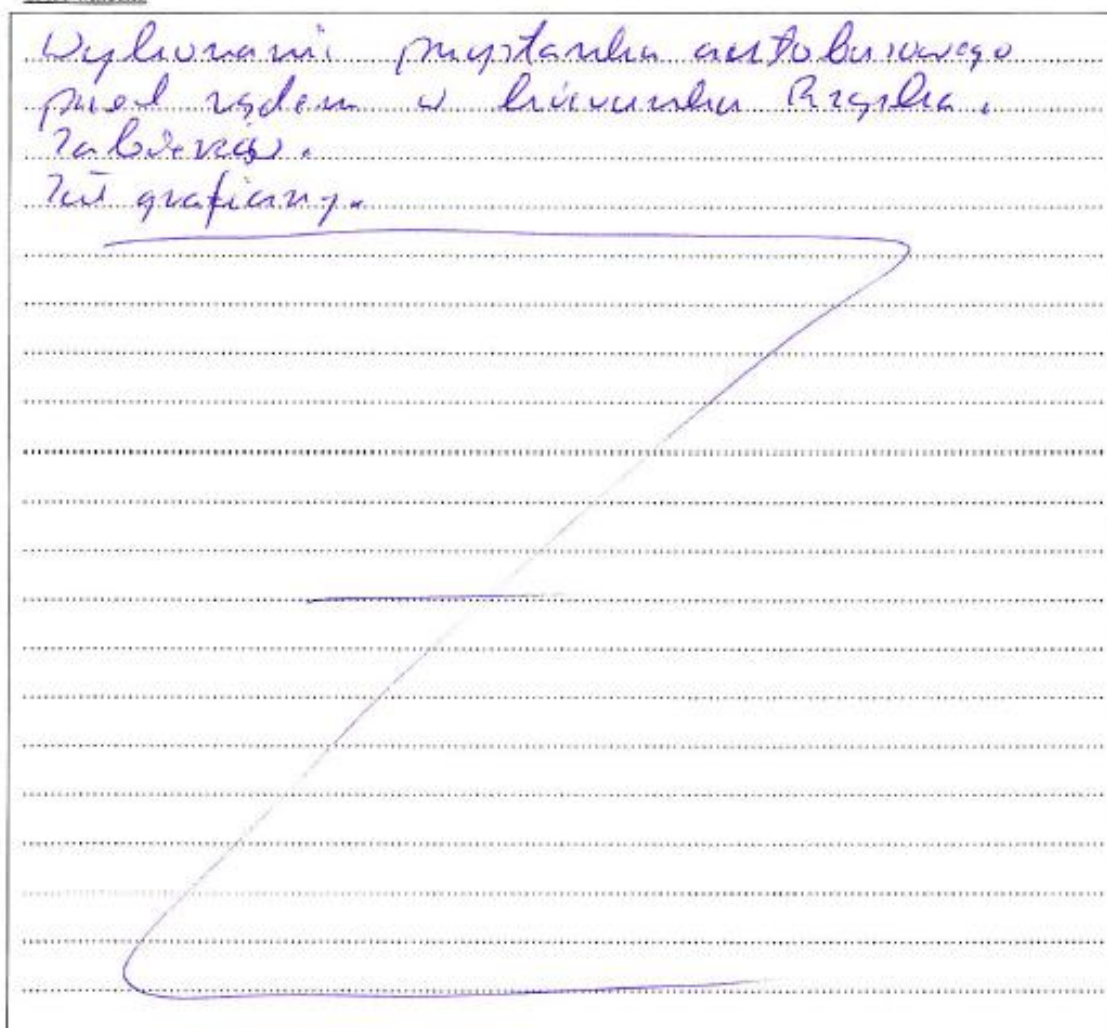 Wykonanie przystanku autobusowego
przed sądem w kierunku Rząska,
Zabierzów.
Zał graficzny.